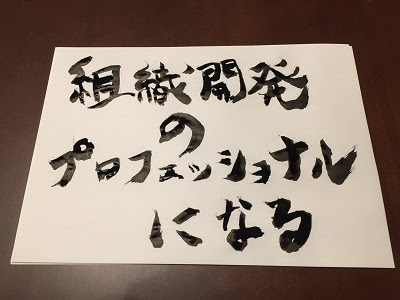 組織開発
の
プロフェッショナル
になる